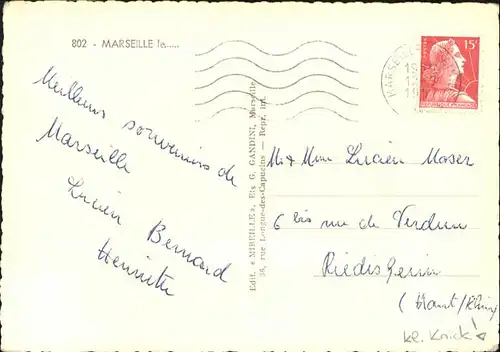 802 - MARSEILLE le.....
Meilleurs souvenirs de
Marseille
Lucien Bernard
Henriette
Edit. « MIREILLE », Ets G. GANDINI, Marseille
38, rue Longue-des-Capucins — Repr. int.
MARSEILLE
15F
REPUBLIQUE FRANÇAISE
Mr & Mme Lucien Moser
6 bis rue de Verdun
Riedisheim
(Haut/Rhin)
kl. Knick!